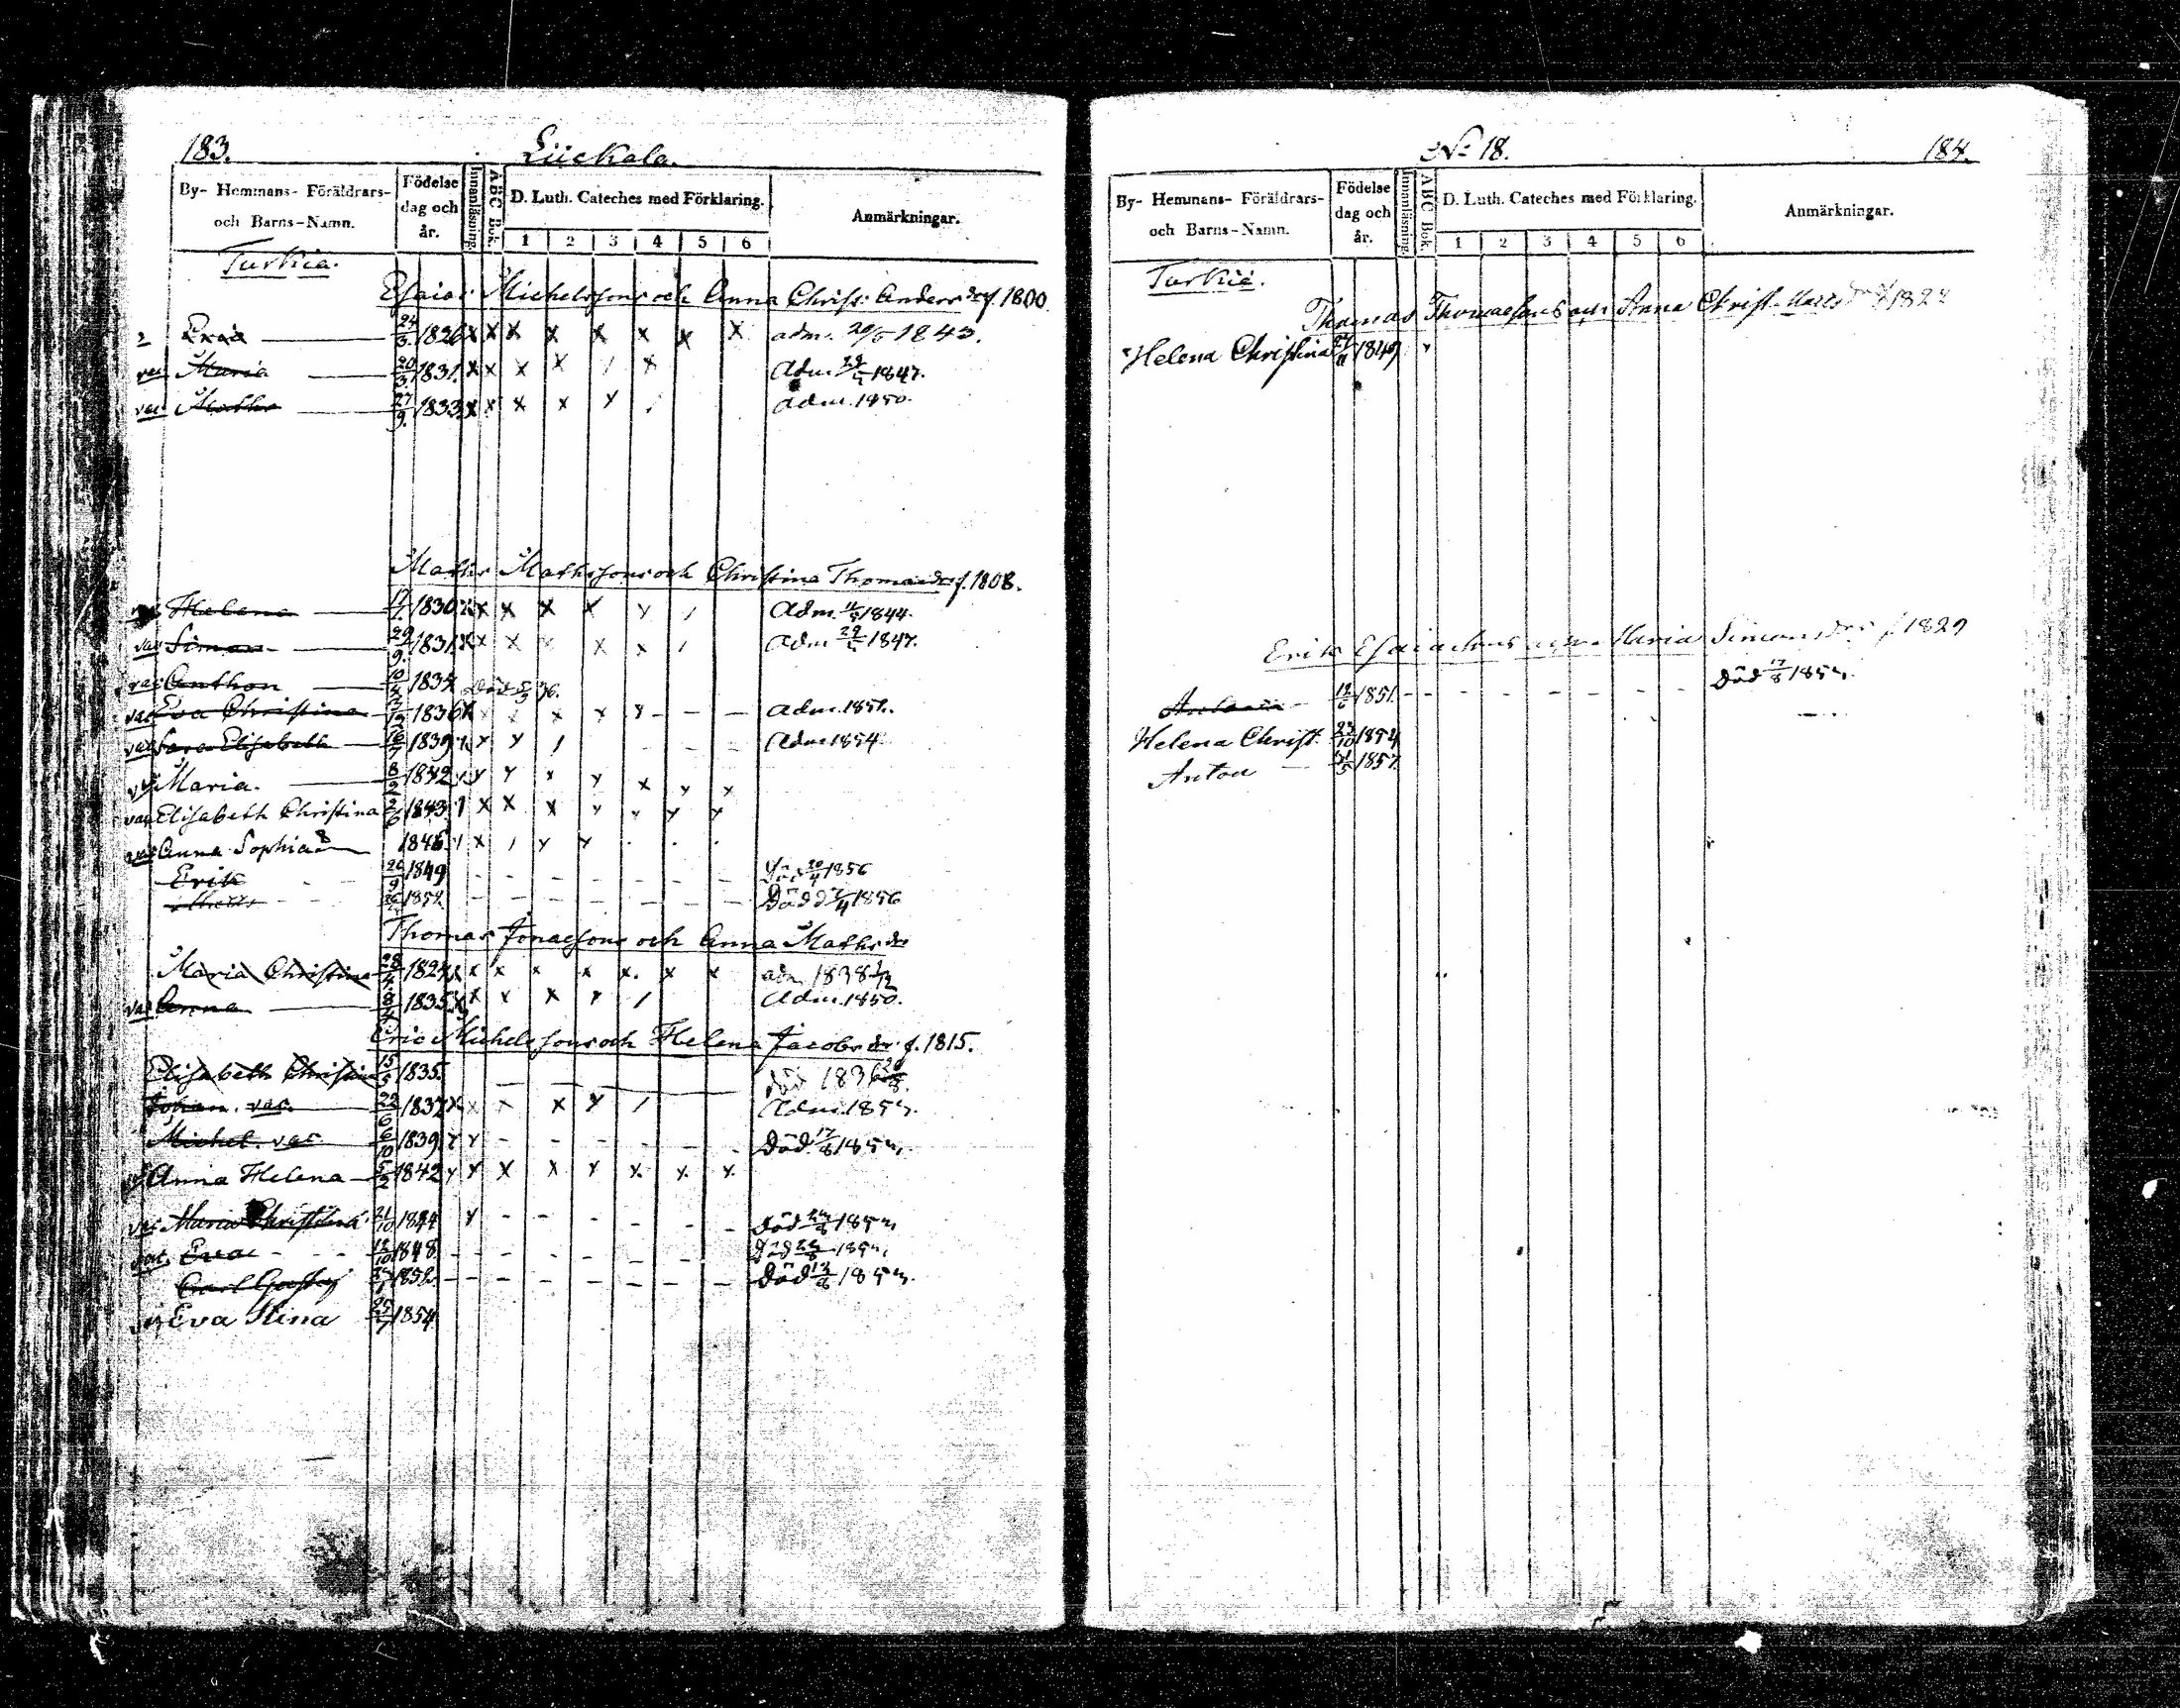 183. Liickala.
By- Hemmans- Föräldrars- och Barns-Namn. Födelse dag och år. Innanläsning. ABC Bok. D. Luth. Cateches med Förklaring. 1 2 3 4 5 6 Anmärkningar.
Turkia.
Esaias Michelssons och Anna Christ. Anders dr f. 1800.
Eric 24/3 1826 x x x x x x x x adm. 1843.
vac Maria 20/3 1831. x x x x / x Adm. 1847.
vac Maths 27/9. 1833 x x x x x / Adm. 1850.
Maths Mathssons och Christina Thomaedr f. 1808.
Helena 17/7. 1830 x x x x x x / Adm. 1844.
vac Simon 29/9. 1831 x x x x x x / Adm 1847.
vac Anthon 1834 Död 36.
vac Eva Christina 1836 x x x x x x - - - Adm. 1852.
vac Sara Elisabeth 16/7 1839 x x x / - - - Adm 1854.
Maria. 8/2 1842 x x x x x x x x
vac Elisabeth Christina 2/6 1843 / x x x x x x x
vac Anna Sophia 1846 / x / x x . . .
Erik 1849 - - - - - - - Död 1856
1852 - - - - - - - Död 1856
Thomas Jonaesons och Anna Maths dr
Maria Christina 28/4 1824 x x x x x x x x adm 1838
vac Anna 8/4 1835 x x x x x / Adm. 1850.
Eric Michelssons och Helena Jacobs dr f. 1815.
Elisabeth Christina 15/5 1835. död 1836
Johan. vac. 22/6 1837 x x x x x / Adm. 1853.
Michel. vac 6/10 1839. x x - - - - - - Död 17/8 1853.
Anna Helena 5/2 1842 x x x x x x x x
vac Maria Christina 21/10 1844 x - - - - - - Död 1853
vac Eva 12/10 1848. - - - - - - Död 1853
Carl Gustaf 1852 - - - - - - - - Död 1853.
Eva Stina 25/7 1854
No 18. 184.
By- Hemmans- Föräldrars- och Barns-Namn. Födelse dag och år. Innanläsning. ABC Bok. D. Luth. Cateches med Förklaring. 1 2 3 4 5 6 Anmärkningar.
Turkia.
Thomas Thomaesons och Anna Christ. Matts
Helena Christina 1849
Erik Esaiaesons och Maria Simonsdr f 1829
1851. - - - - - - - Död 17/8 1853.
Helena Christ. 23/10 1854
Anton 1857